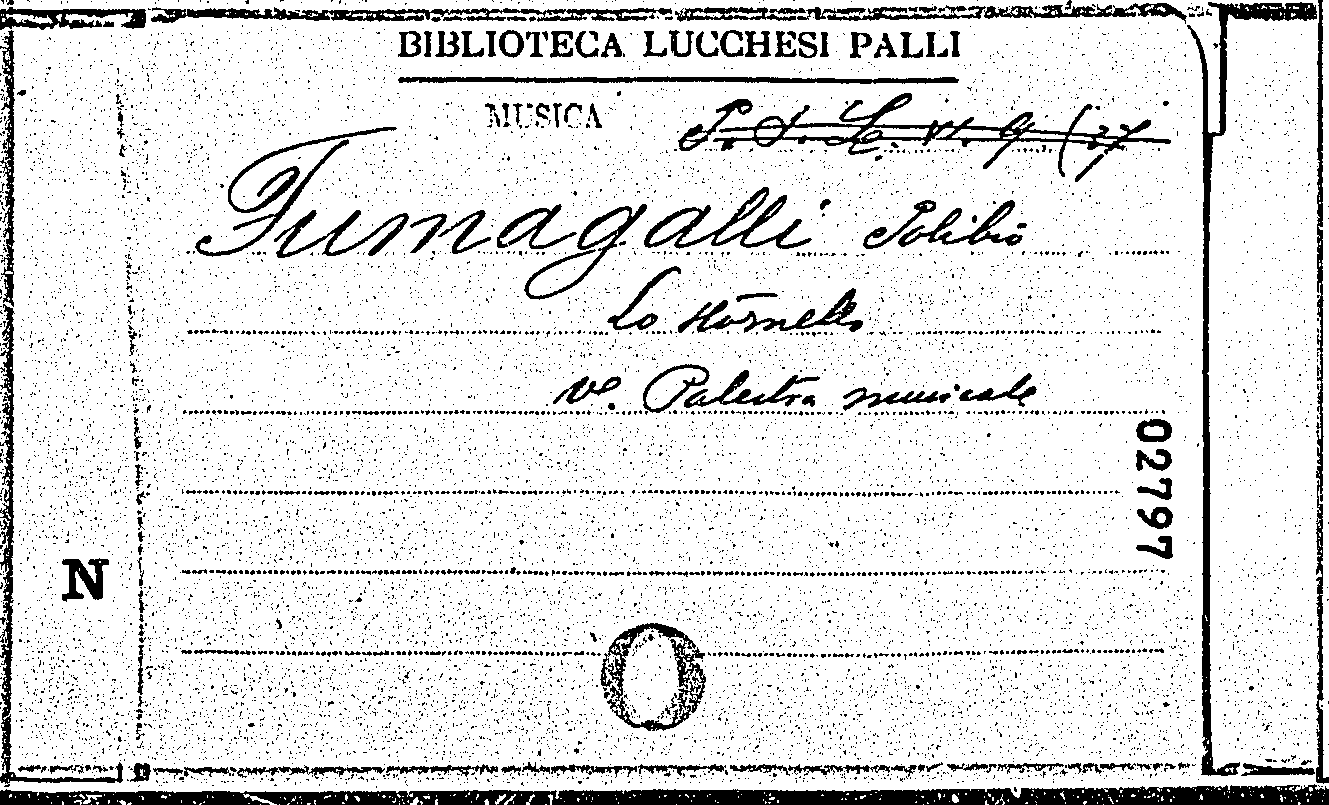 BIBLIOTECA LUCCHESI PALLI
MUSICA
Fumagalli Polibio
Lo
vº. Palestra musicale
02797
N